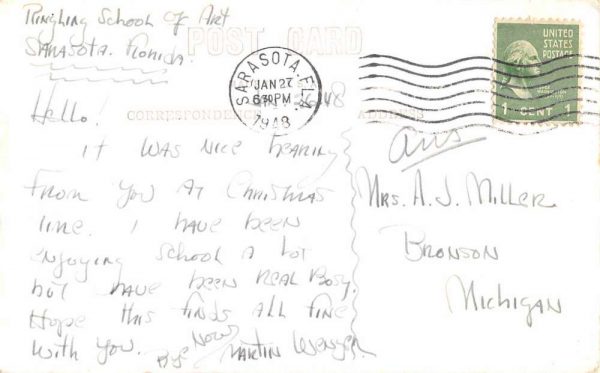 Ringling School of Art
Sarasota. Florida.
POST CARD
SARASOTA, FLA.
JAN 27
630 PM
1948
UNITED
STATES
POSTAGE
1 CENT 1
48
CORRESPONDENCE
ADDRESS
Hello!
it was nice hearing
From you at Christmas
time. I have been
enjoying school a lot
but have been real Busy.
Hope this finds all fine
with you.
Bye Now
Martin
Ans
Mrs. A. J. Miller
Bronson
Michigan